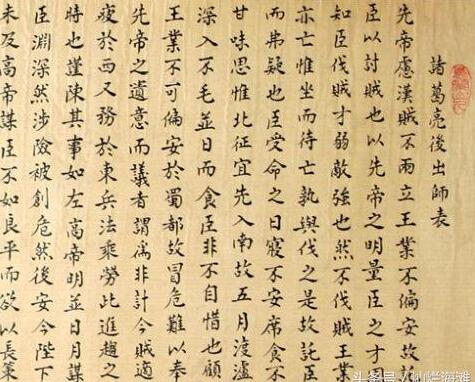 諸葛亮後出師表
先帝慮漢賊不兩立王業不偏安故
臣以討賊也以先帝之明量臣之才
知臣伐賊才弱敵強也然不伐賊王業
亦亡惟坐而待亡孰與伐之是故託臣
而弗疑也臣受命之日寢不安席食不
甘味思惟北征宜先入南故五月渡瀘
深入不毛並日而食臣非不自惜也顧
王業不可偏安於蜀都故冒危難以奉
先帝之遺意而議者謂為非計今賊適
疲於西又務於東兵法乘勞此進趨之
時也謹陳其事如左高帝明並日月謀
臣淵深然涉險被創危然後安今陛下
未及高帝謀臣不如良平而欲以長策
头条号/灿烂海滩